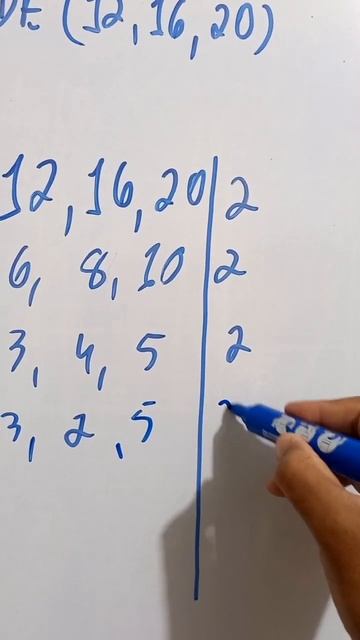 DE (12, 16, 20)
12, 16, 20 | 2
6, 8, 10 | 2
3, 4, 5 | 2
3, 2, 5